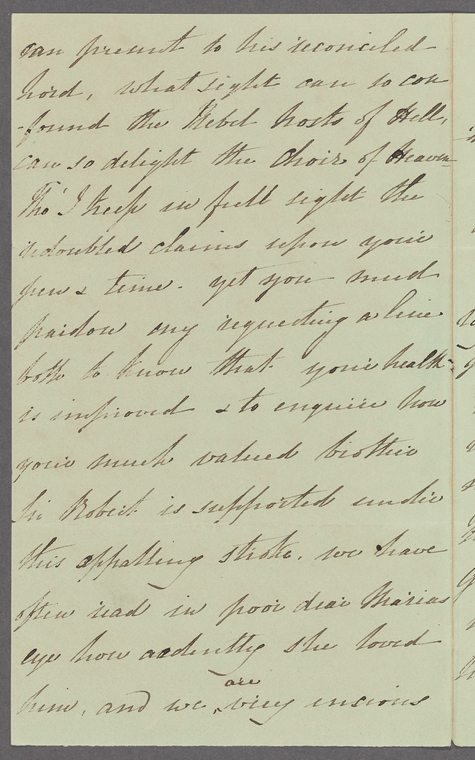 can present to his reconciled
Lord, what sight can so con
-found the Rebel hosts of Hell,
can so delight the Choir of Heaven
Tho' I keep in full sight the
redoubled claims upon your
pen & time - yet you must
pardon my requesting a line
both to know that your health
is improved & to enquire how
your much valued brother
Sir Robert is supported under
this appalling stroke. we have
often read in poor dear Marias
eye how ardently she loved
him, and we are very anxious